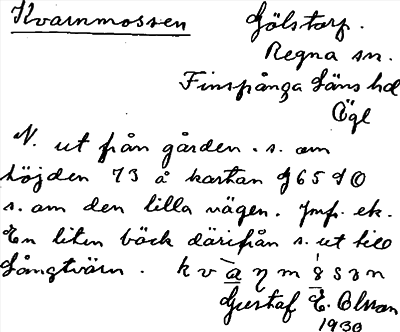 Kvarnmossen Gölstorp.
Regna sn.
Finspånga läns hd
Ögl
N. ut från gården. s. om
höjden 73 å kartan J 65 SO
s. om den lilla vägen. Jmf. ek.
En liten bäck därifrån s. ut till
Långtvärn.
Gustaf E. Olsson
1930